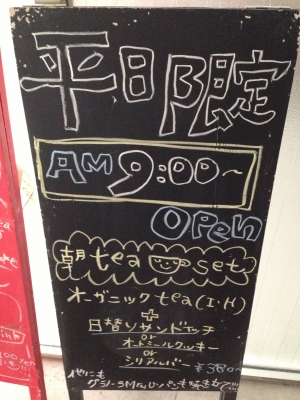 平日限定
AM 9:00~
OPEN
朝tea set
オーガニックtea(I・H)
+
日替りサンドイッチ
or
オートミールクッキー
or
シリアルバー
¥380~
他にも